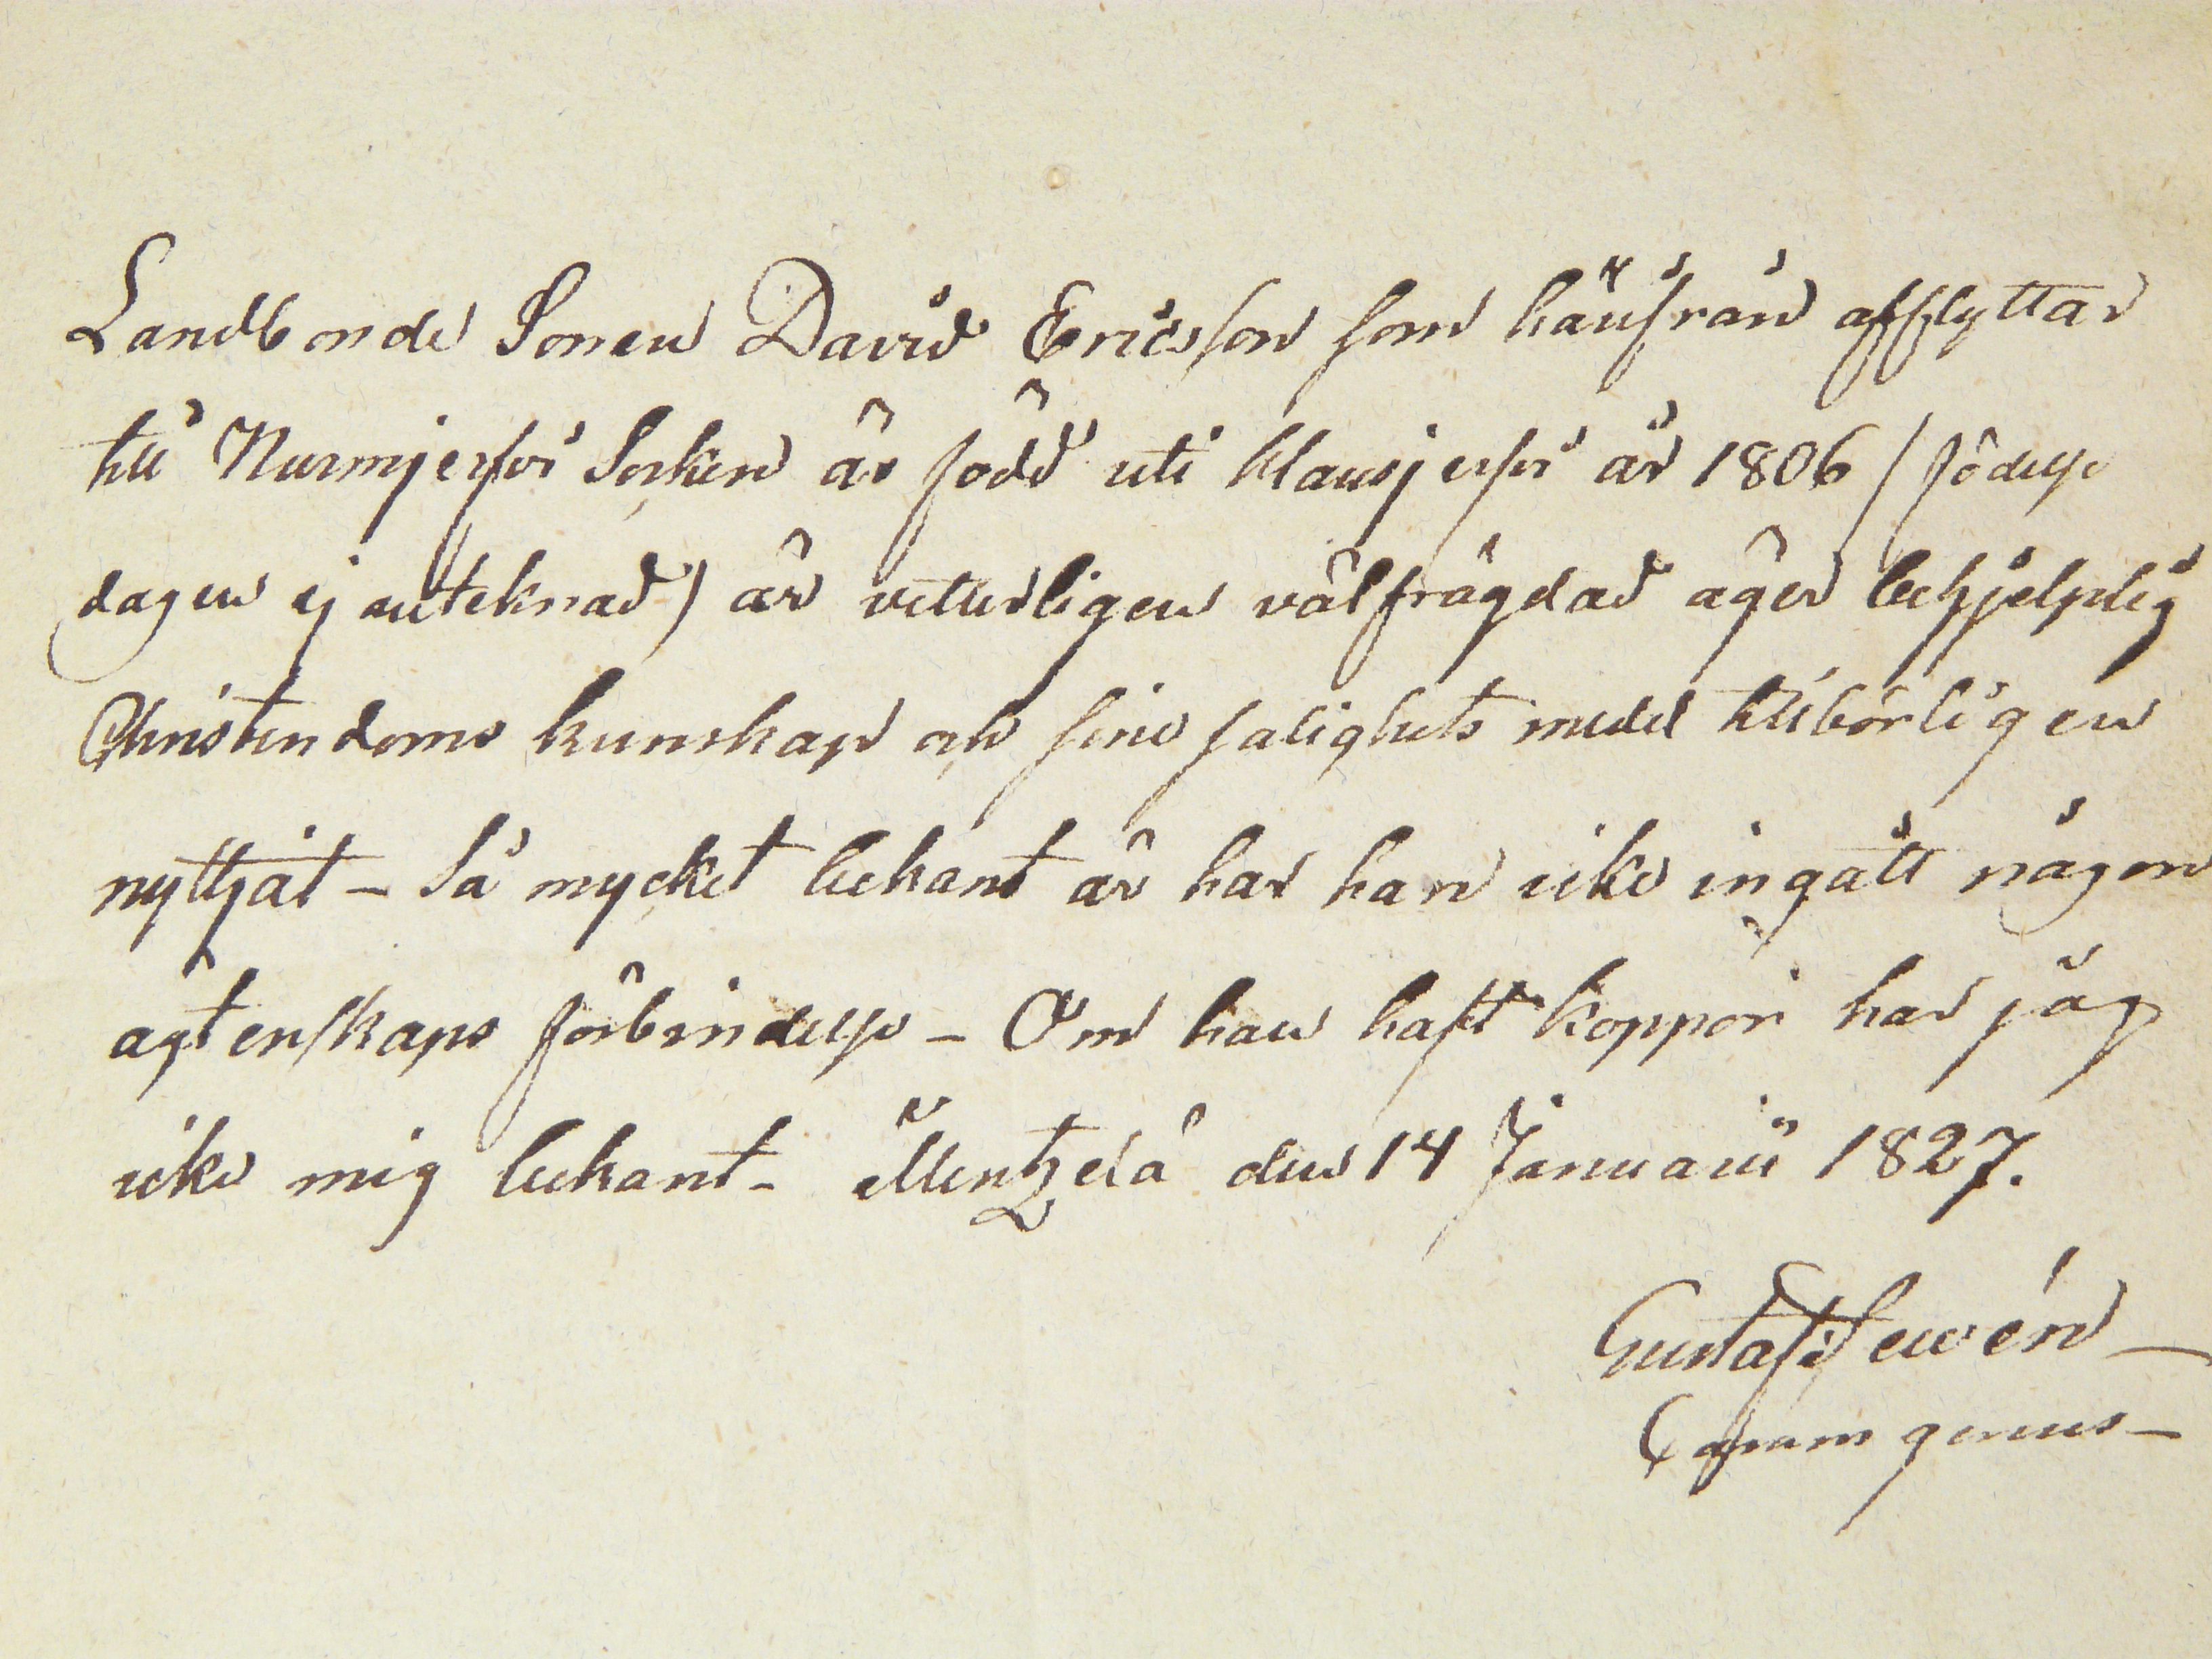 Landbonde Sonen David Ericsson som härifrån afflyttar
till Nurmjerfvi Socken är född uti Klausjerfvi år 1806 (födelse
dagen ej anteknad) är veterligen välfrägdad äger behjelplig
Christendoms kunskap och sine salighets medel tilbörligen
nyttjat - Så mycket bekant är har han icke ingått någon
ägtenskaps förbindelse - Om han haft koppor har jag
icke mig bekant - Mentzelä den 14 Januarii 1827.
Gustaf